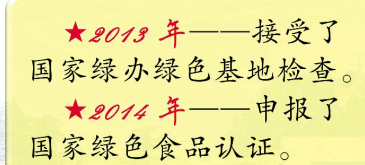 ★2013 年——接受了
国家绿办绿色基地检查。
★2014 年——申报了
国家绿色食品认证。